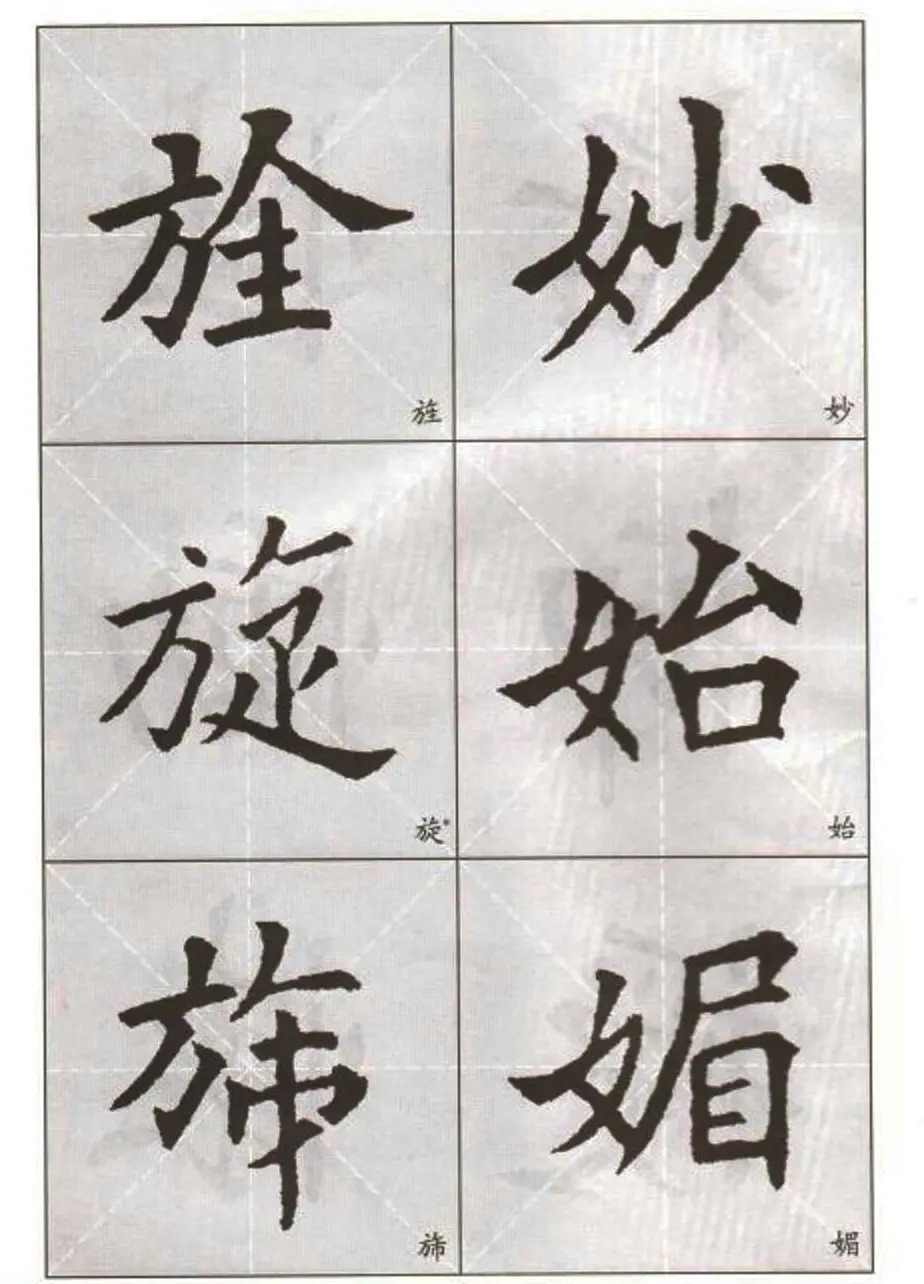 妙
妙
始
始
媚
媚
旌
旌
旋
旋
旆
旆